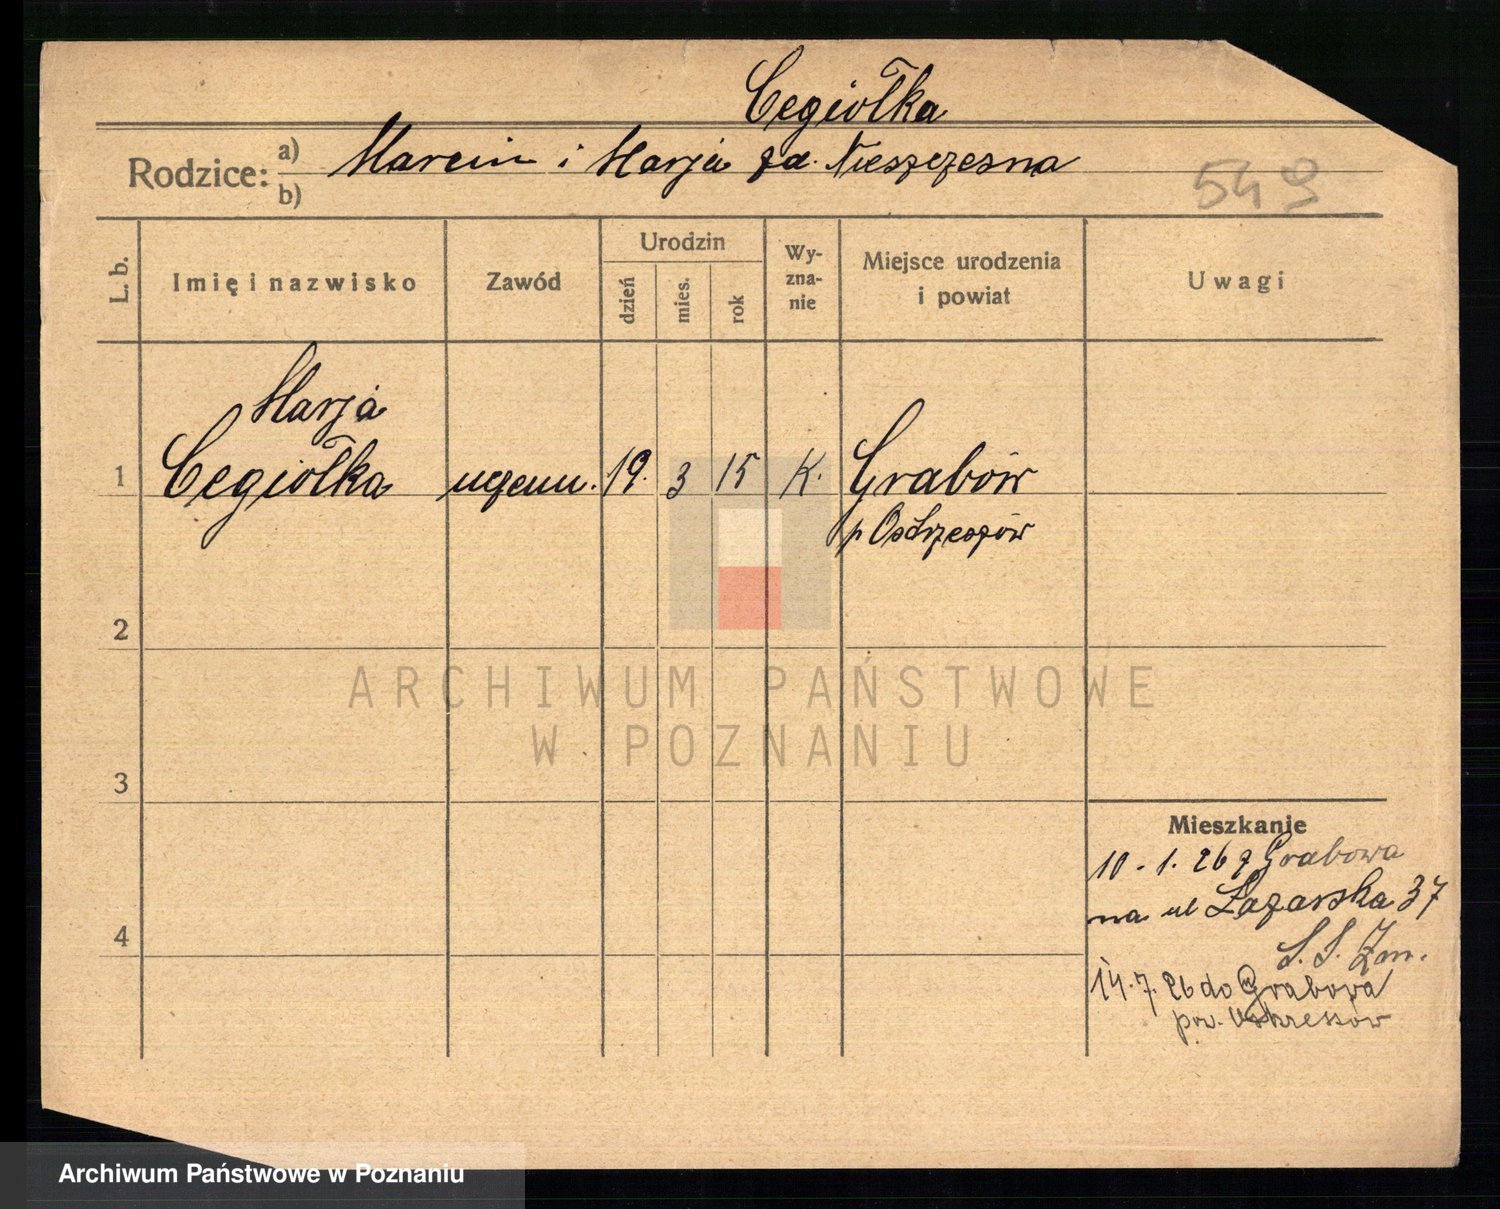 Cegiołka
Rodzice: a) Marcin i Marja zd. Nieszczesna
b)
549
L. b. Imię i nazwisko Zawód Urodzin dzień mies. rok Wyznanie Miejsce urodzenia i powiat Uwagi
Marja
1 Cegiołka uczenn. 19. 3 15 K. Grabów
p Ostrzeszów
2
ARCHIWUM PAŃSTWOWE
W POZNANIU
3
Mieszkanie
10-1. 26 z Grabowa
na ul Łazarska 37
4
14.7.26 do Grabowa
pow.
Archiwum Państwowe w Poznaniu